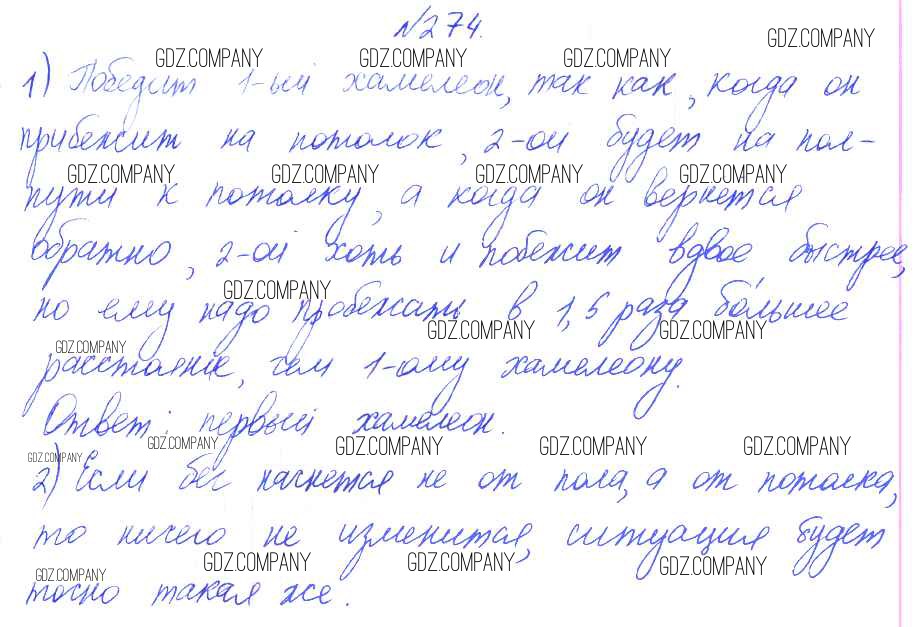 №274.
GDZ.COMPANY GDZ.COMPANY GDZ.COMPANY GDZ.COMPANY
1) Победит 1-ый хамелеон, так как, когда он
прибежит на потолок, 2-ой будет на пол-
GDZ.COMPANY GDZ.COMPANY GDZ.COMPANY GDZ.COMPANY
пути к потолку, а когда он вернется
обратно, 2-ой хоть и побежит вдвое быстрее,
GDZ.COMPANY
но ему надо пробежать в 1,5 раза большее
GDZ.COMPANY GDZ.COMPANY GDZ.COMPANY
расстояние, чем 1-ому хамелеону.
Ответ: первый хамелеон.
GDZ.COMPANY GDZ.COMPANY GDZ.COMPANY GDZ.COMPANY GDZ.COMPANY
2) Если бег начнется не от пола, а от потолка,
то ничего не изменится, ситуация будет
GDZ.COMPANY GDZ.COMPANY GDZ.COMPANY GDZ.COMPANY
точно такая же.